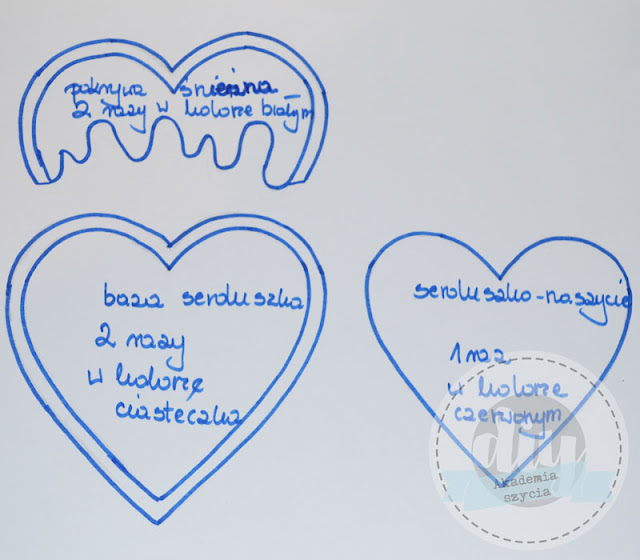 pokrywa śnieżna
2 razy w kolorze białym
baza serduszka
2 razy
w kolorze
ciasteczka
serduszko-naszycie
1 raz
w kolorze
czerwonym
diy
Akademia
szycia